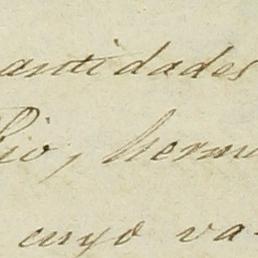 antidades
Pio, herm
cuyo va-